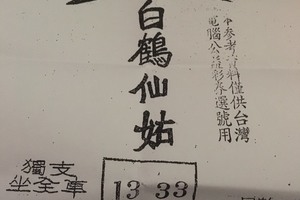 白鶴仙姑
中參考資料僅供台灣
電腦公益彩券選號用
獨支
坐全車
13 33